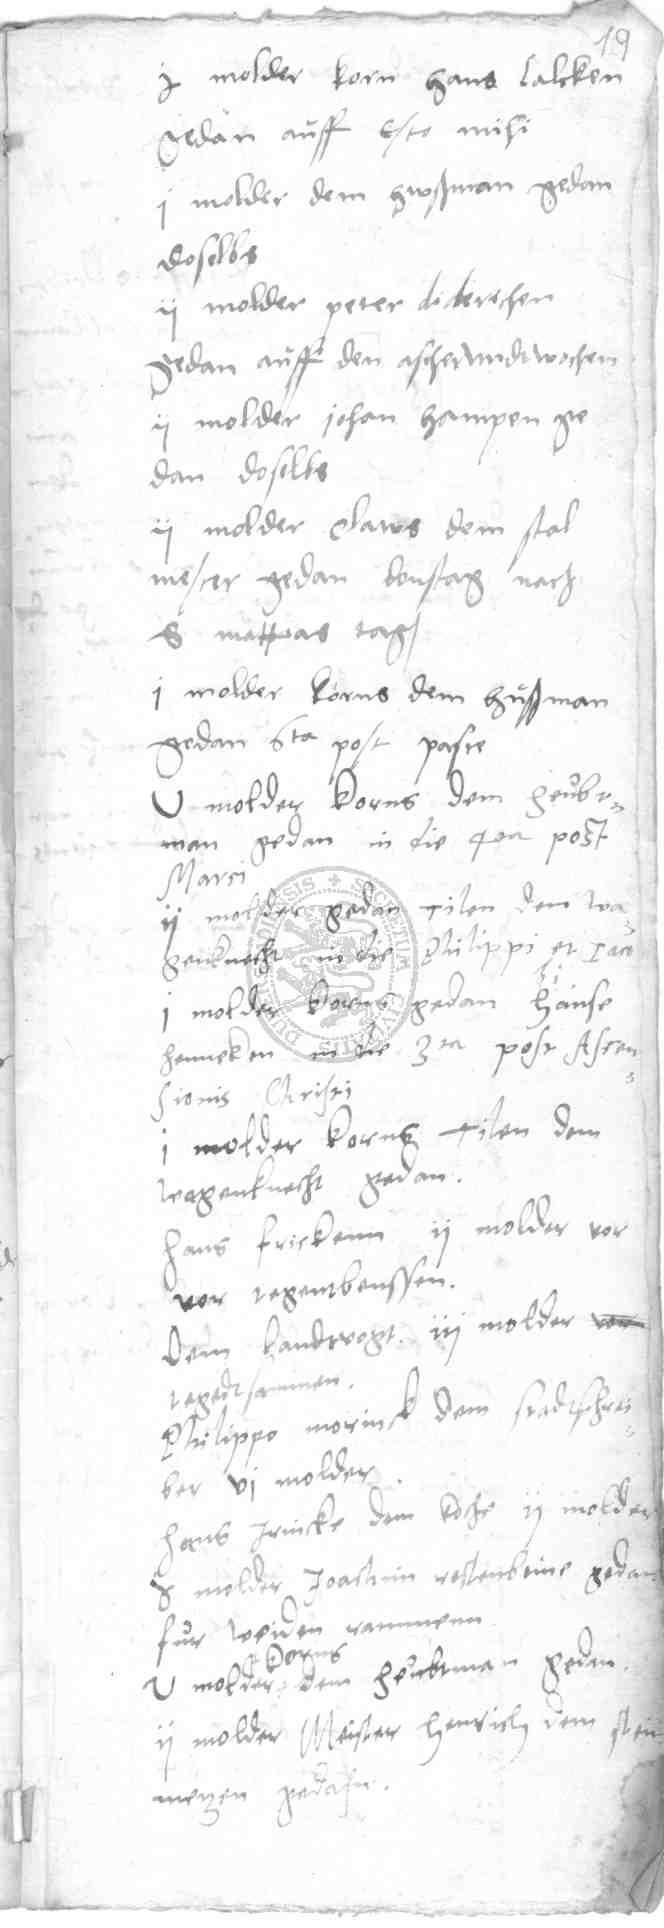 19
j molder korn hans lalcken
gedan auff Esto mihi
j molder dem hwßman gedan
doselbs
ij molder peter diderichen
gedan auff den ascherundtwochen
ij molder johan hampen ge
dan doselbs
ij molder Claws dem stal
mester gedan donstag nach
S mattias tag
j molder korns dem hußman
gedan 6ta post pasce
V molder korns dem heubt=
man gedan in die 4ta post
Marci
ij molder gedan Tilen dem wa=
genknecht in die Philippi et Jaco
j molder korns gedan Hanse
henneken in die 3ta post Ascen=
sionis Christi
j molder korns Tilen dem
wagenknecht gedan.
Hans frickenn ij molder vor
vor
dem landtvogt. iij molder vor
Philippo morinck dem stadtschrei=
ber vj molder.
Hans Irincke dem koche ij molder
molder Joachim gedan
fur weiden rammenn
korns
V molder dem heubtman gedan.
ij molder Meister Henrich dem stein
metzen gedan.